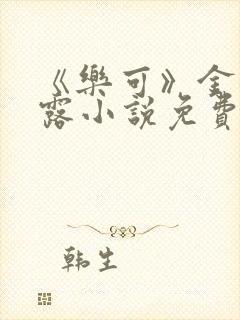 《樂可》金
露小說免費
韩生